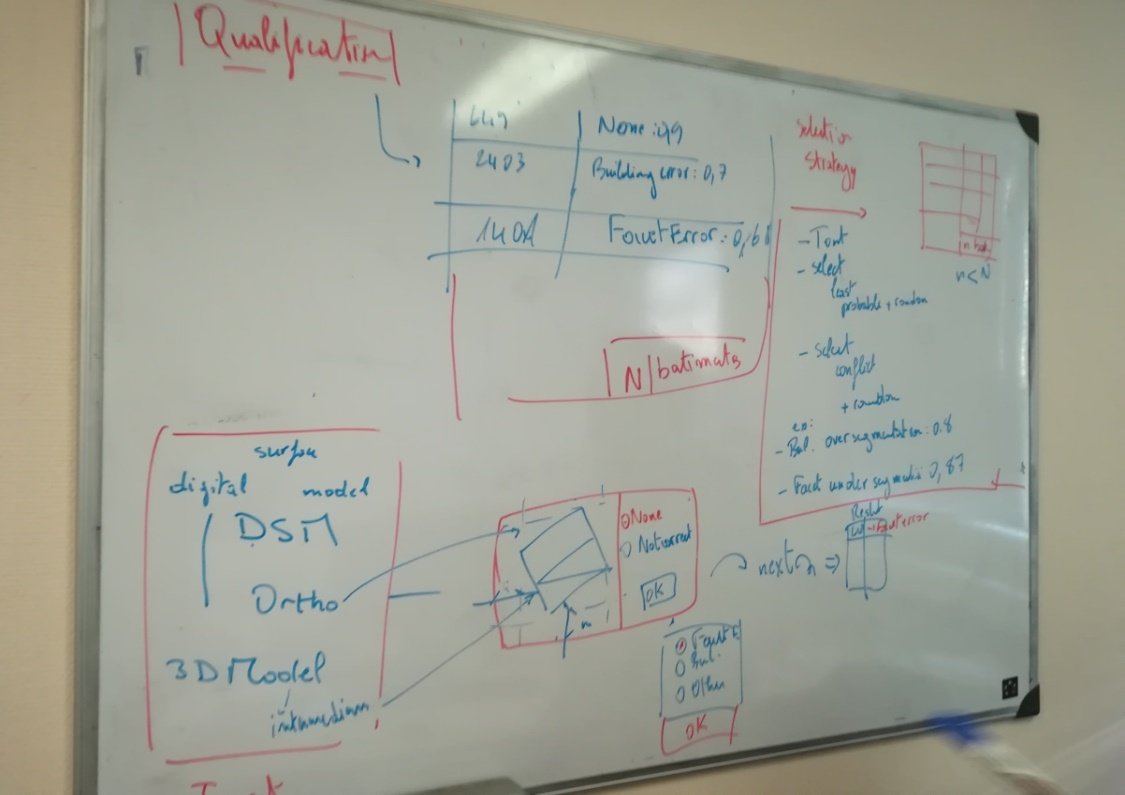 Qualification
None : 0,9
2403
Building error : 0,7
1401
Facet Error : 0,6
N batiments
selection
strategy
n < N
- Tout
- select
least
probable + random
- select
conflict
+ random
ex:
- Bul. over segmentation : 0.8
- Facet under segmentation : 0,87
surface
digital model
DSM
Ortho
3D Model
None
Not correct
OK
next
Result
Facet error
Facet E
Bul.
Other
OK